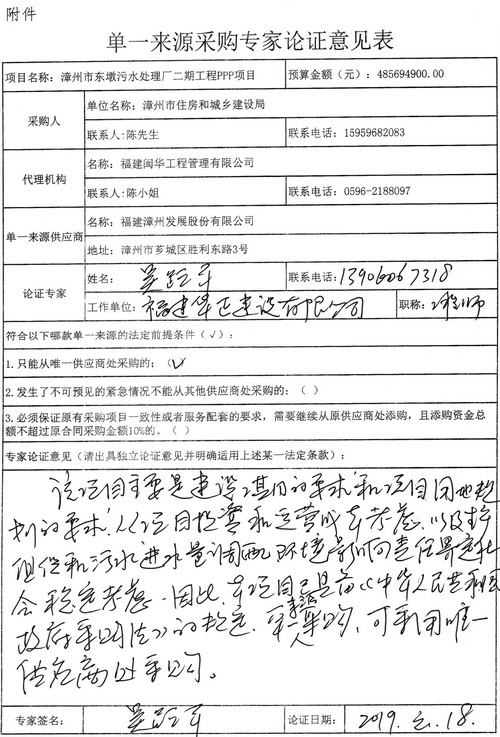 附件
单一来源采购专家论证意见表
项目名称：漳州市东墩污水处理厂二期工程PPP项目 预算金额（元）：485694900.00
采购人
单位名称：漳州市住房和城乡建设局
联系人：陈先生 联系电话：15959682083
代理机构
名称：福建闽华工程管理有限公司
联系人：陈小姐 联系电话：0596-2188097
单一来源供应商
名称：福建漳州发展股份有限公司
地址：漳州市芗城区胜利东路3号
论证专家
姓名： 联系电话：13906067318
工作单位：福建华正建设有限公司 职称：工程师
符合以下哪款单一来源的法定前提条件（√）：
1.只能从唯一供应商处采购的；（√）
2.发生了不可预见的紧急情况不能从其他供应商处采购的；（ ）
3.必须保证原有采购项目一致性或者服务配套的要求，需要继续从原供应商处添购，且添购资金总
额不超过原合同采购金额10%的。（ ）
专家论证意见（请出具独立论证意见并明确适用上述某一法定条款）：
该项目主要是建设期的要求和项目用地规
划的要求，从项目投资和运营成本考虑，以及
和污水进水量调配，环境影响责任界定社
会稳定考虑。因此，本项目《中华人民共和国
政府采购法》的规定，可采用唯一
供应商处采购。
专家签名： 论证日期：2019.2.18.